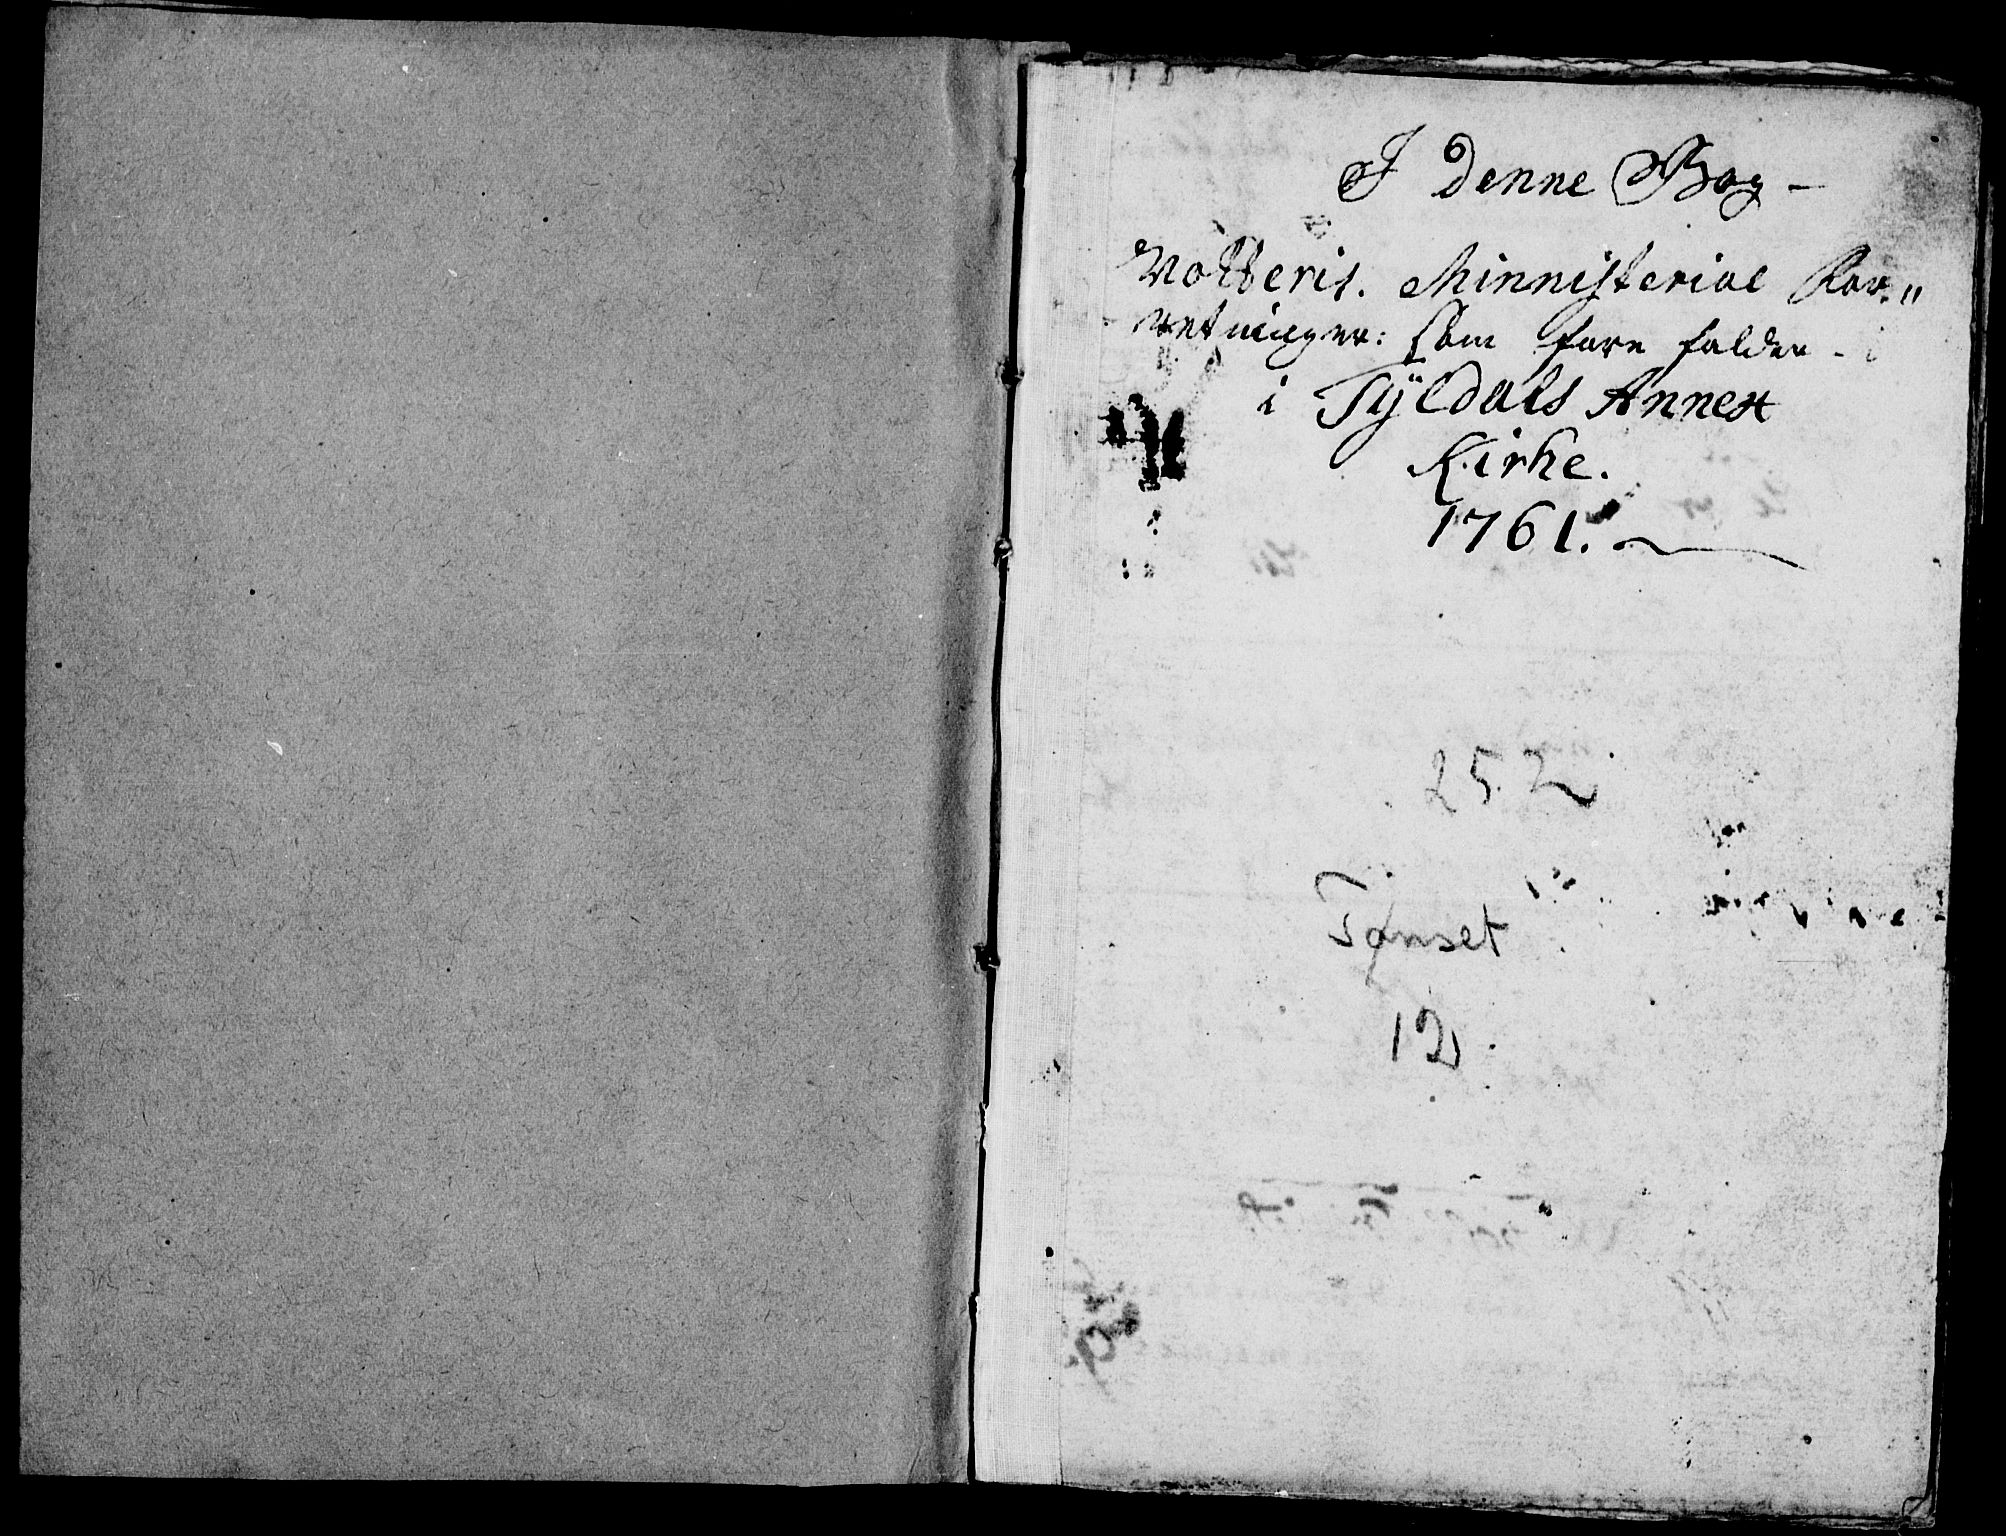 I Denne Bog -
Notteris. Ministerial For:"
retninger: som fore falder - i
i Tyldals Annex
Kirke.
1761.
252
Tønset
12.